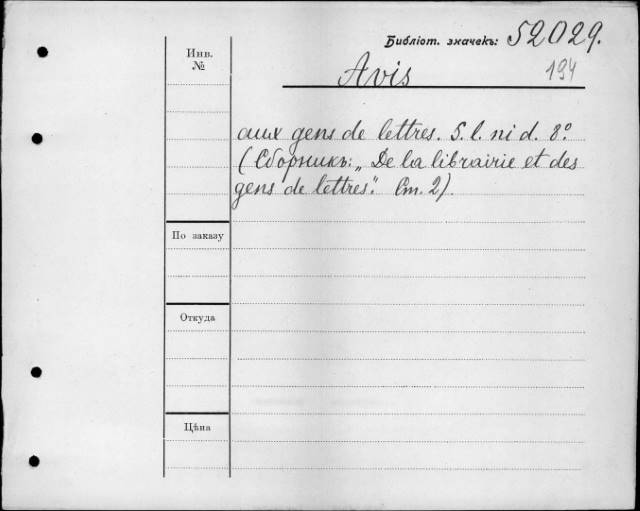 Библіот. значекъ: 52029.
Инв. №
Avis
194
aux gens de lettres. S. l. ni d. 8º.
(Сборникъ: „De la librairie et des
gens de lettres“. Ст. 2).
По заказу
Откуда
Цѣна